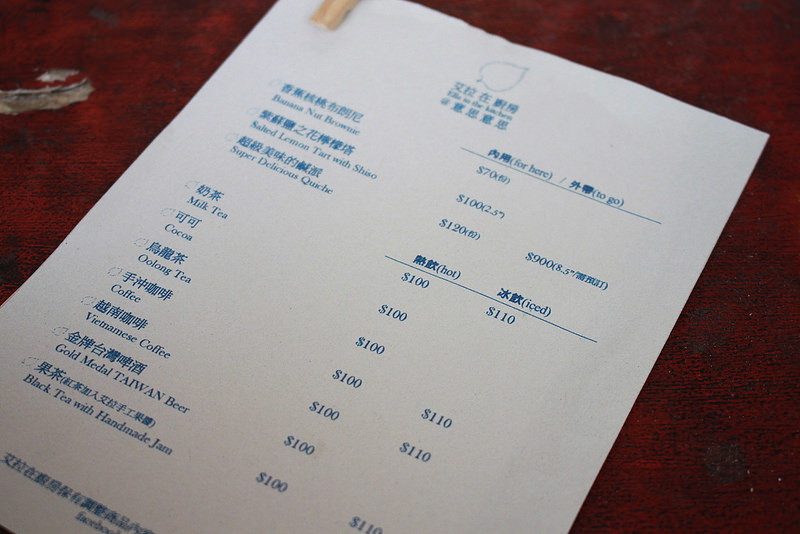 艾拉在廚房
Ella in the kitchen
意思意思
內用(for here) / 外帶(to go)
香蕉核桃布朗尼
Banana Nut Brownie
$70(份)
紫蘇鹽之花檸檬塔
Salted Lemon Tart with Shiso
$100(2.5")
$900(8.5"/需預訂)
超級美味的鹹派
Super Delicious Quiche
$120(份)
熱飲(hot)
冰飲(iced)
奶茶
Milk Tea
$100
$110
可可
Cocoa
$100
烏龍茶
Oolong Tea
$100
手沖咖啡
Coffee
$100
越南咖啡
Vietnamese Coffee
$100
$110
金牌台灣啤酒
Gold Medal TAIWAN Beer
$100
$110
果茶(紅茶加入艾拉手工果醬)
Black Tea with Handmade Jam
$100
$110
艾拉在廚房保有調整商品內容
facebook